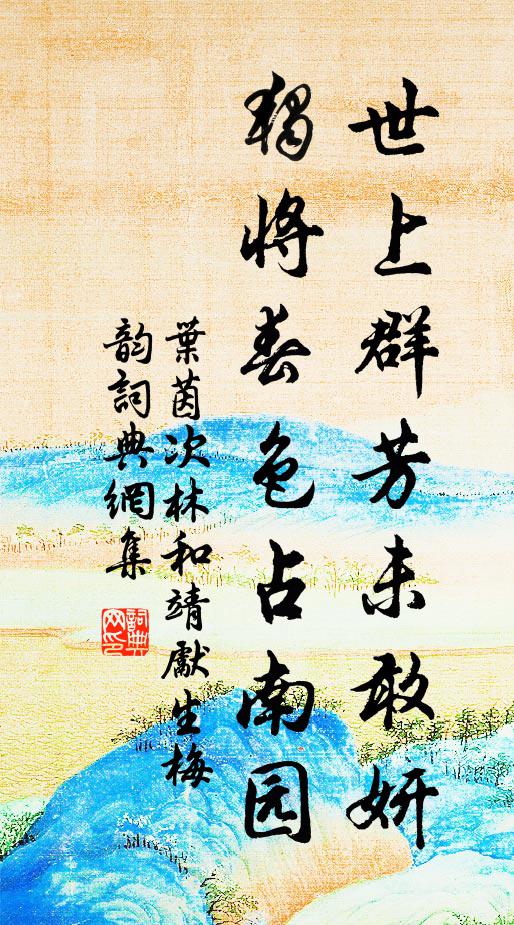 世上群芳未敢妍
独将春色占南园
葉茵次林和靖獻生梅
韵詞典網集
詞典
网印